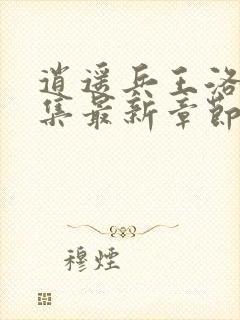 逍遥兵王洛
集最新章節
穆煙